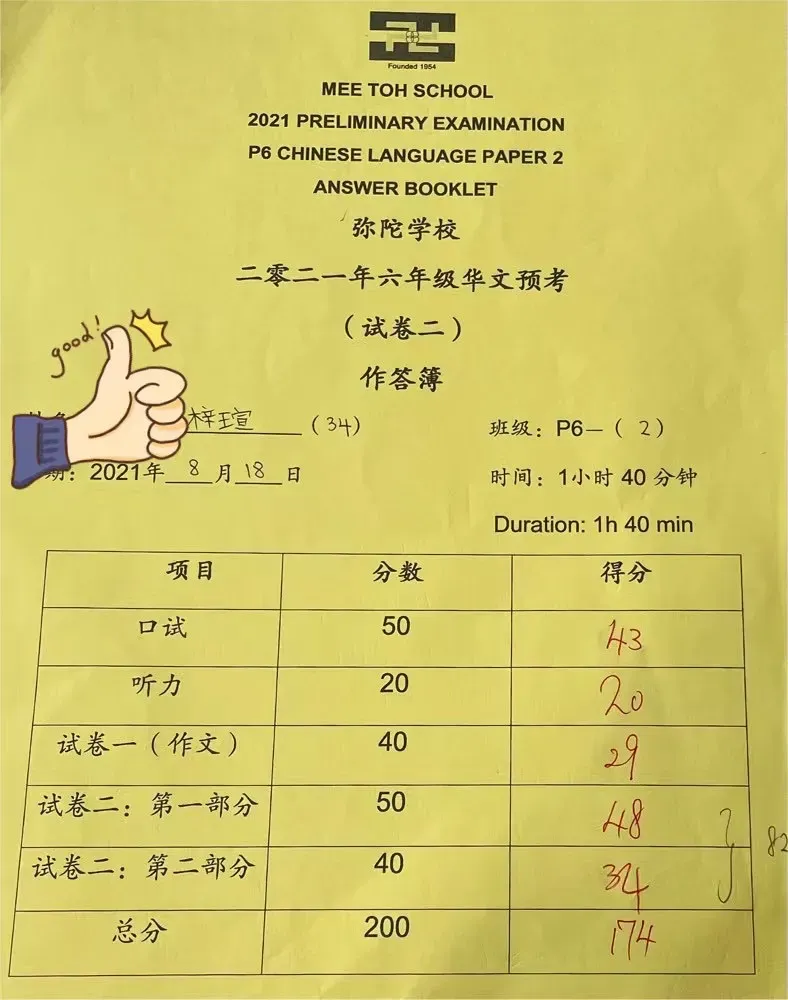 Founded 1954
MEE TOH SCHOOL
2021 PRELIMINARY EXAMINATION
P6 CHINESE LANGUAGE PAPER 2
ANSWER BOOKLET
弥陀学校
二零二一年六年级华文预考
（试卷二）
作答簿
good!
梓瑄 (34) 班级：P6—（ 2 ）
期：2021年 8 月 18 日 时间：1小时 40 分钟
Duration: 1h 40 min
项目 分数 得分
口试 50 43
听力 20 20
试卷一（作文） 40 29
试卷二：第一部分 50 48
82
试卷二：第二部分 40 34
总分 200 174